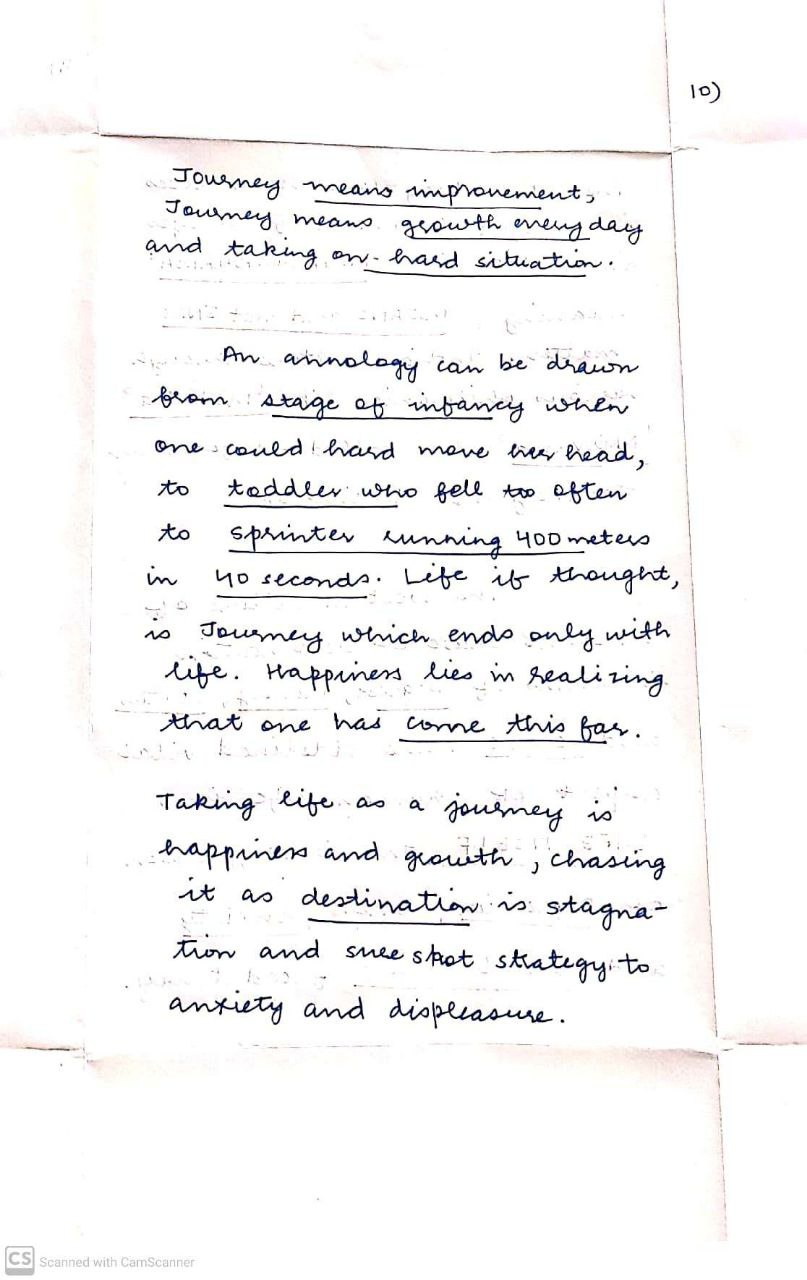 10)
Journey means improvement,
Journey means growth every day
and taking on hard situation.
An annology can be drawn
from stage of infancy when
one could hard move her head,
to toddler who fell too often
to sprinter running 400 meters
in 40 seconds. Life if thought,
is Journey which ends only with
life. Happiness lies in realizing
that one has come this far.
Taking life as a journey is
happiness and growth, chasing
it as destination is stagna-
tion and sure shot strategy to
anxiety and displeasure.
CS Scanned with CamScanner